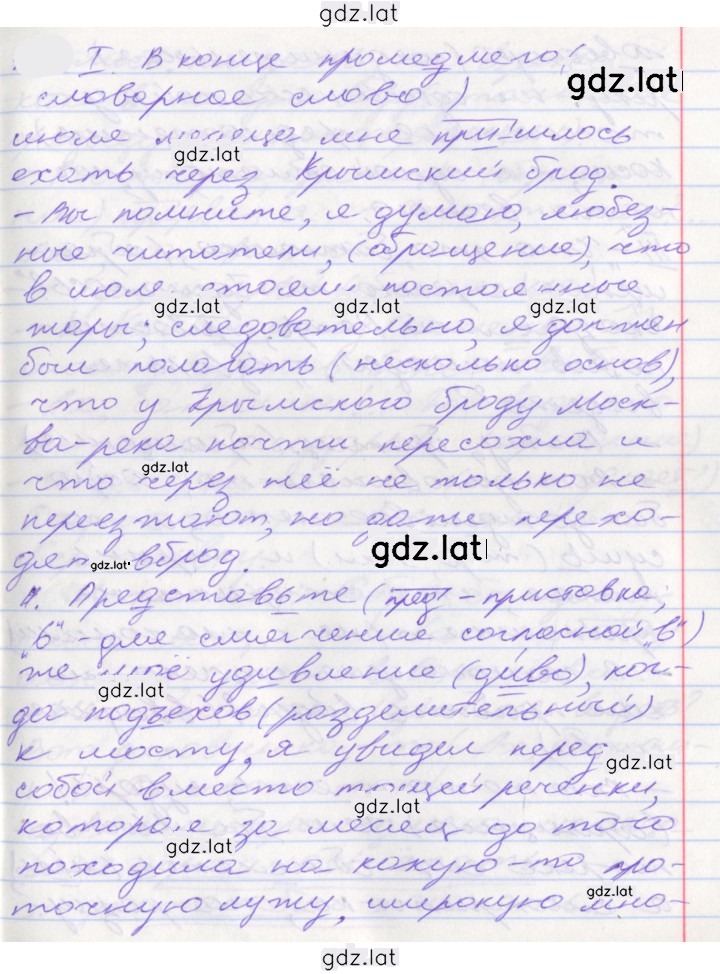 gdz.lat
I. В конце прошедшего (
gdz.lat
словарное слово)
июле месяца мне пришлось
gdz.lat
ехать через Крымский брод.
- Вы помните, я думаю, любез-
ные читатели, (обращение), что
в июле стояли постоянные
gdz.lat gdz.lat gdz.lat
жары; следовательно, я должен
был полагать (несколько основ),
что у Крымского броду Моск-
ва-река почти пересохла и
gdz.lat
что через неё не только не
переезжают, но даже перехо-
gdz.lat
дят вброд.
gdz.lat
II. Представьте (пред - приставка;
"ь" - для смягчение согласной "в")
же моё удивление (диво), ког-
gdz.lat
да подъехав (разделительный)
к мосту, я увидел перед
gdz.lat
собой вместо тощей реченки,
gdz.lat
которая за месяц до того
gdz.lat
походила на какую-то про-
gdz.lat
точную лужу, широкую мно-
gdz.lat